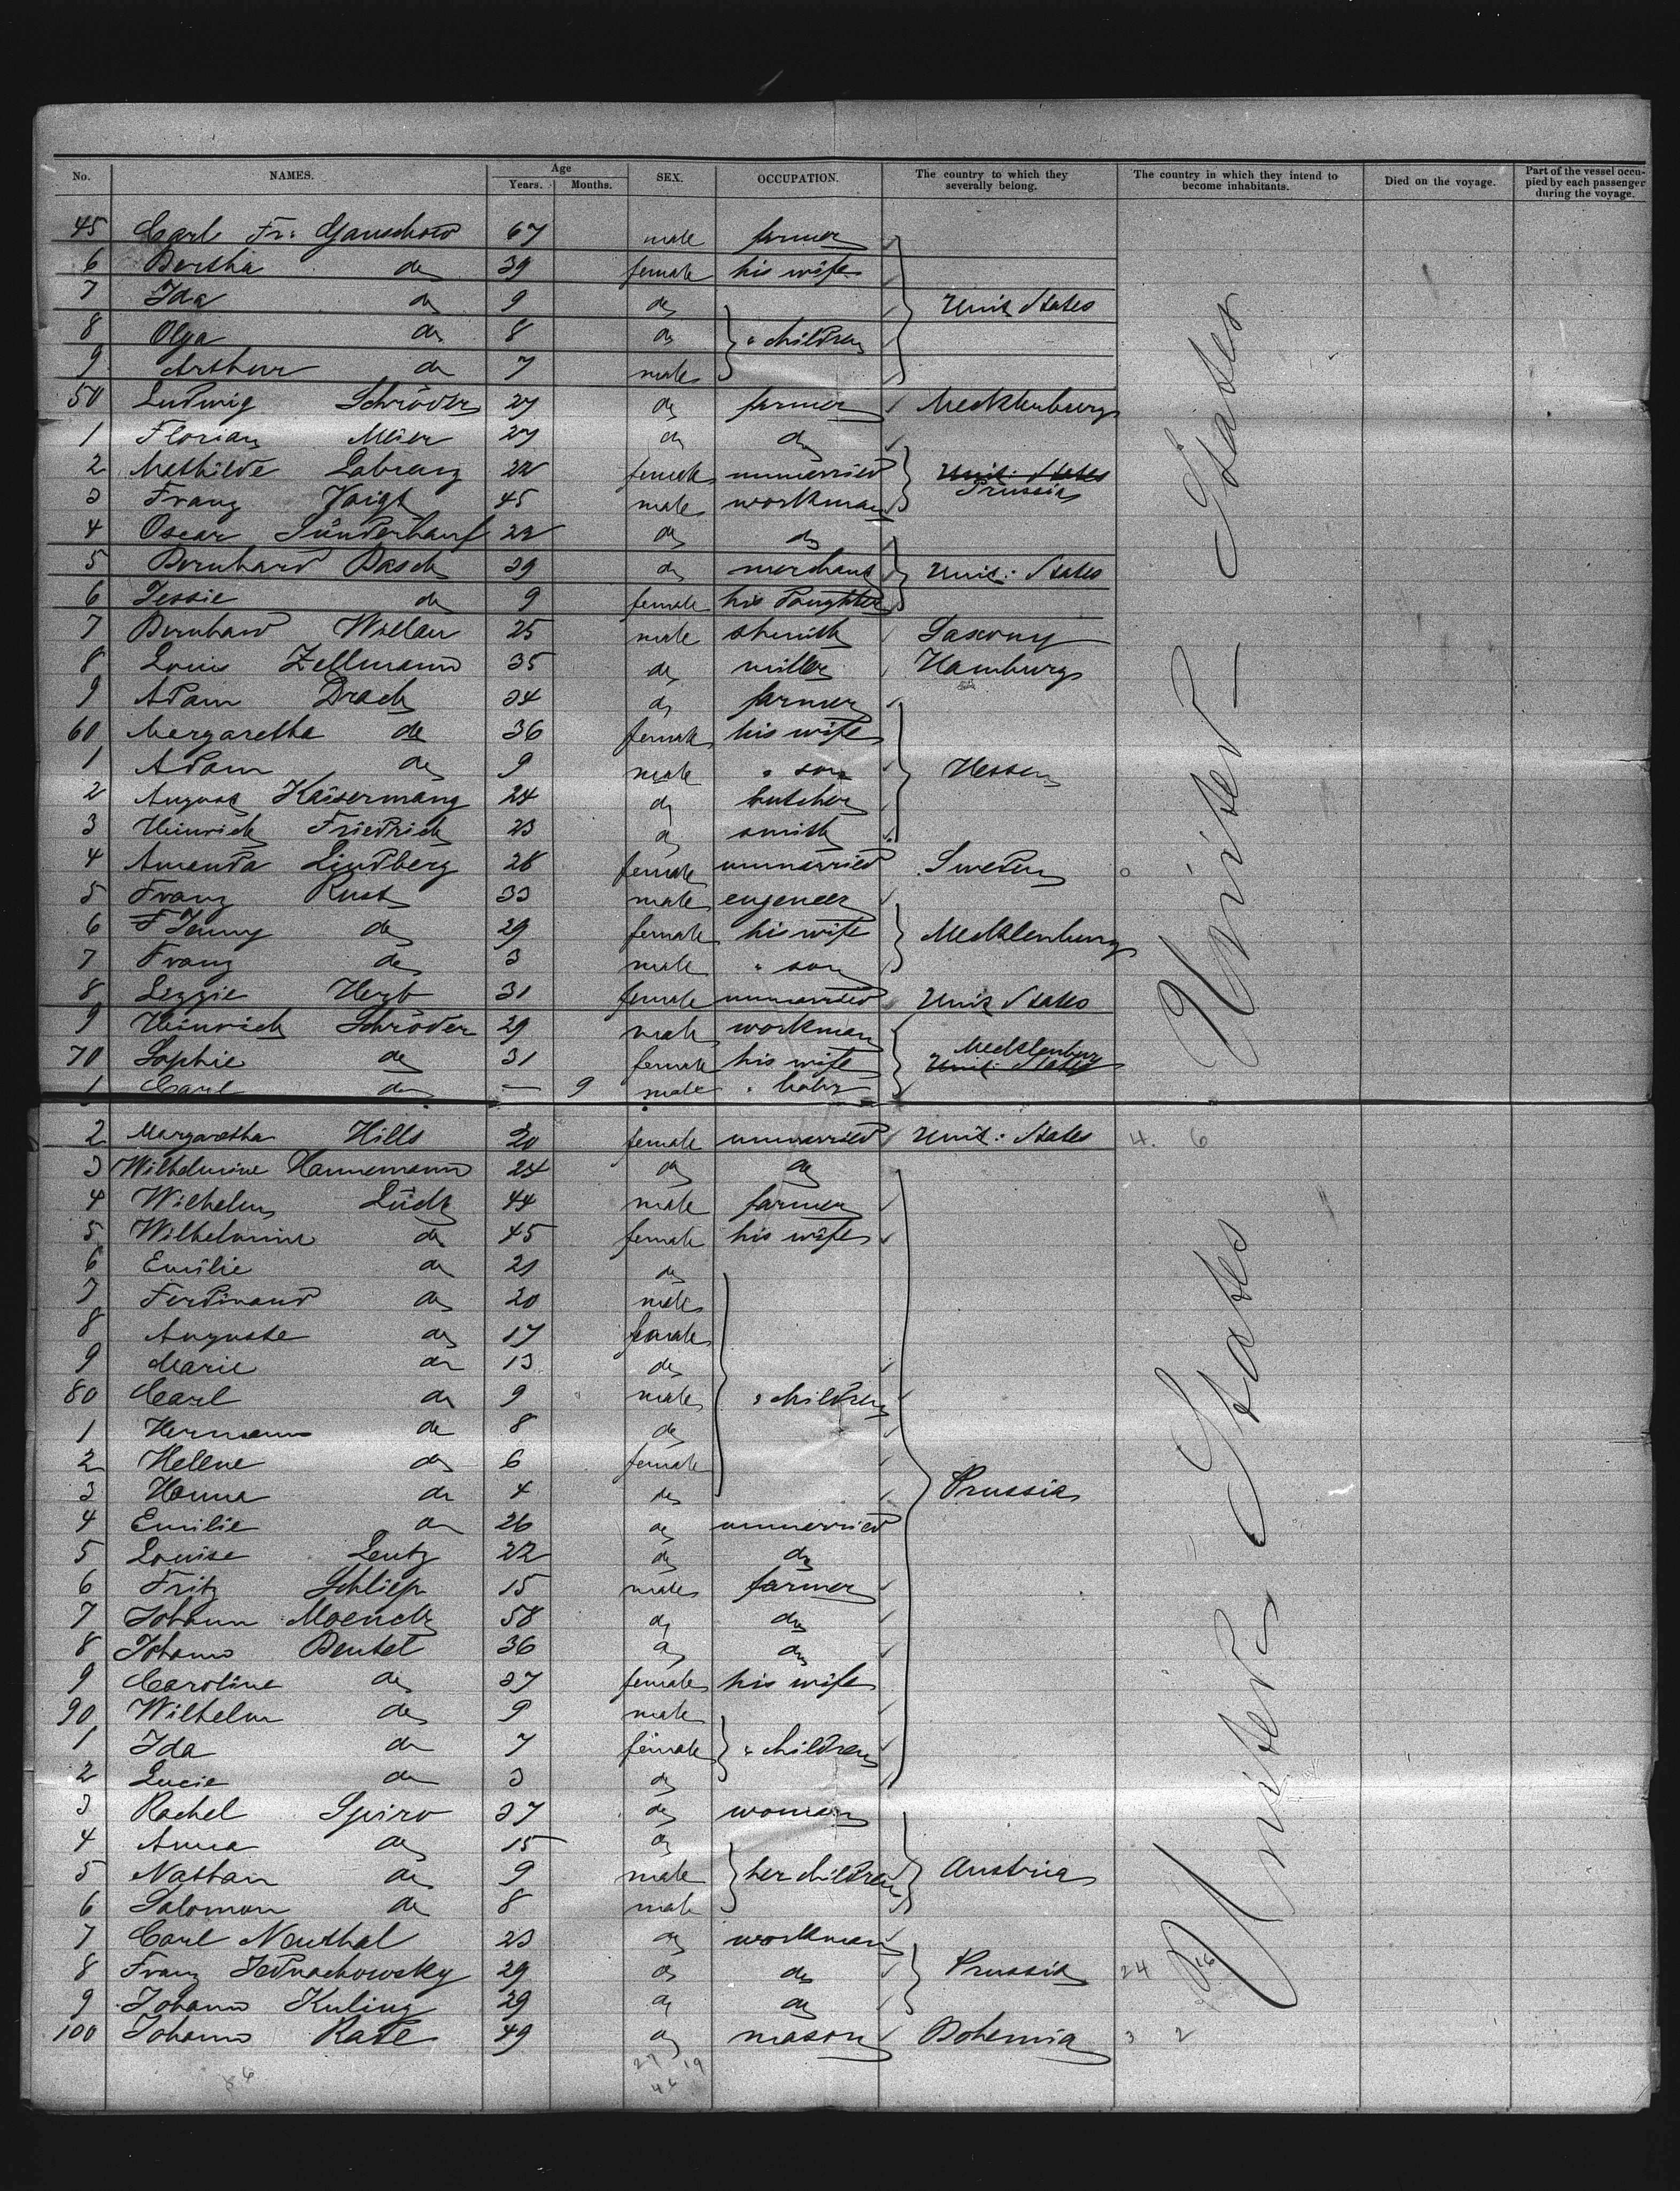 No. NAMES. Age Years. Months. SEX. OCCUPATION. The country to which they severally belong. The country in which they intend to become inhabitants. Died on the voyage. Part of the vessel occupied by each passenger during the voyage.
45 Carl Fr. 67 male farmer
6 Bertha do 39 female his wife
7 Ida do 9 do Unit States
8 Olga do 8 do " children
9 Arthur do 7 male
50 Ludwig Schröder 27 do farmer Mecklenburg
1 Florian Meier 27 do do
2 Mathilde 22 female unmarried Unit: States Prussia
3 Franz Voigt 45 male workman
4 Oscar Sünderhauf 22 do do
5 Bernhard Basch 39 do merchant Unit: States
6 Jessie do 9 female his daughter
7 Bernhard 25 male smith Saxony
8 Louis Zellmann 35 do miller Hamburg
9 Adam Drach 34 do farmer
60 Margaretha do 36 female his wife
1 Adam do 9 male " son Hessen
2 August Kaisermang 24 do butcher
3 Heinrich Friedrich 23 do smith
4 Amanda Ljudberg 28 female unmarried Sweden
5 Franz Rust 33 male engeneer
6 Jenny do 29 female his wife Mecklenburg
7 Franz do 3 male " son
8 Lizzie Herzb 31 female unmarried Unit States
9 Heinrich Schröder 29 male workman
70 Sophie do 31 female his wife Mecklenburg Unit: States
1 Carl do — 9 male " baby
United States
2 Margaretha Hills 20 female unmarried Unit: States 4. 6
3 Wilhelmine Hannemann 24 do do
4 Wilhelm Lüdtz 44 male farmer
5 Wilhelmine do 45 female his wife
6 Emilie do 21 do
7 Ferdinand do 20 male
8 Auguste do 17 female
9 Marie do 13 do
80 Carl do 9 male " children
1 Hermann do 8 do
2 Helene do 6 female
3 Hanna do 4 do Prussia
4 Emilie do 26 do unmarried
5 Louise Lentz 22 do do
6 Fritz Schliep 15 male farmer
7 Johann Moench 58 do do
8 Johann Beutel 36 do do
9 Caroline do 37 female his wife
90 Wilhelm do 9 male
1 Ida do 7 female " children
2 Lucie do 3 do
3 Rachel Spiro 37 do woman
4 Anna do 15 do
5 Nathan do 9 male her children Austria
6 Salomon do 8 male
7 Carl Neuthal 23 do workman
8 Franz Jednachowsky 29 do do Prussia 24 16
9 Johann Kuling 29 do do
100 Johann Rade 49 do mason Bohemia 3 2
United States
27 19
46